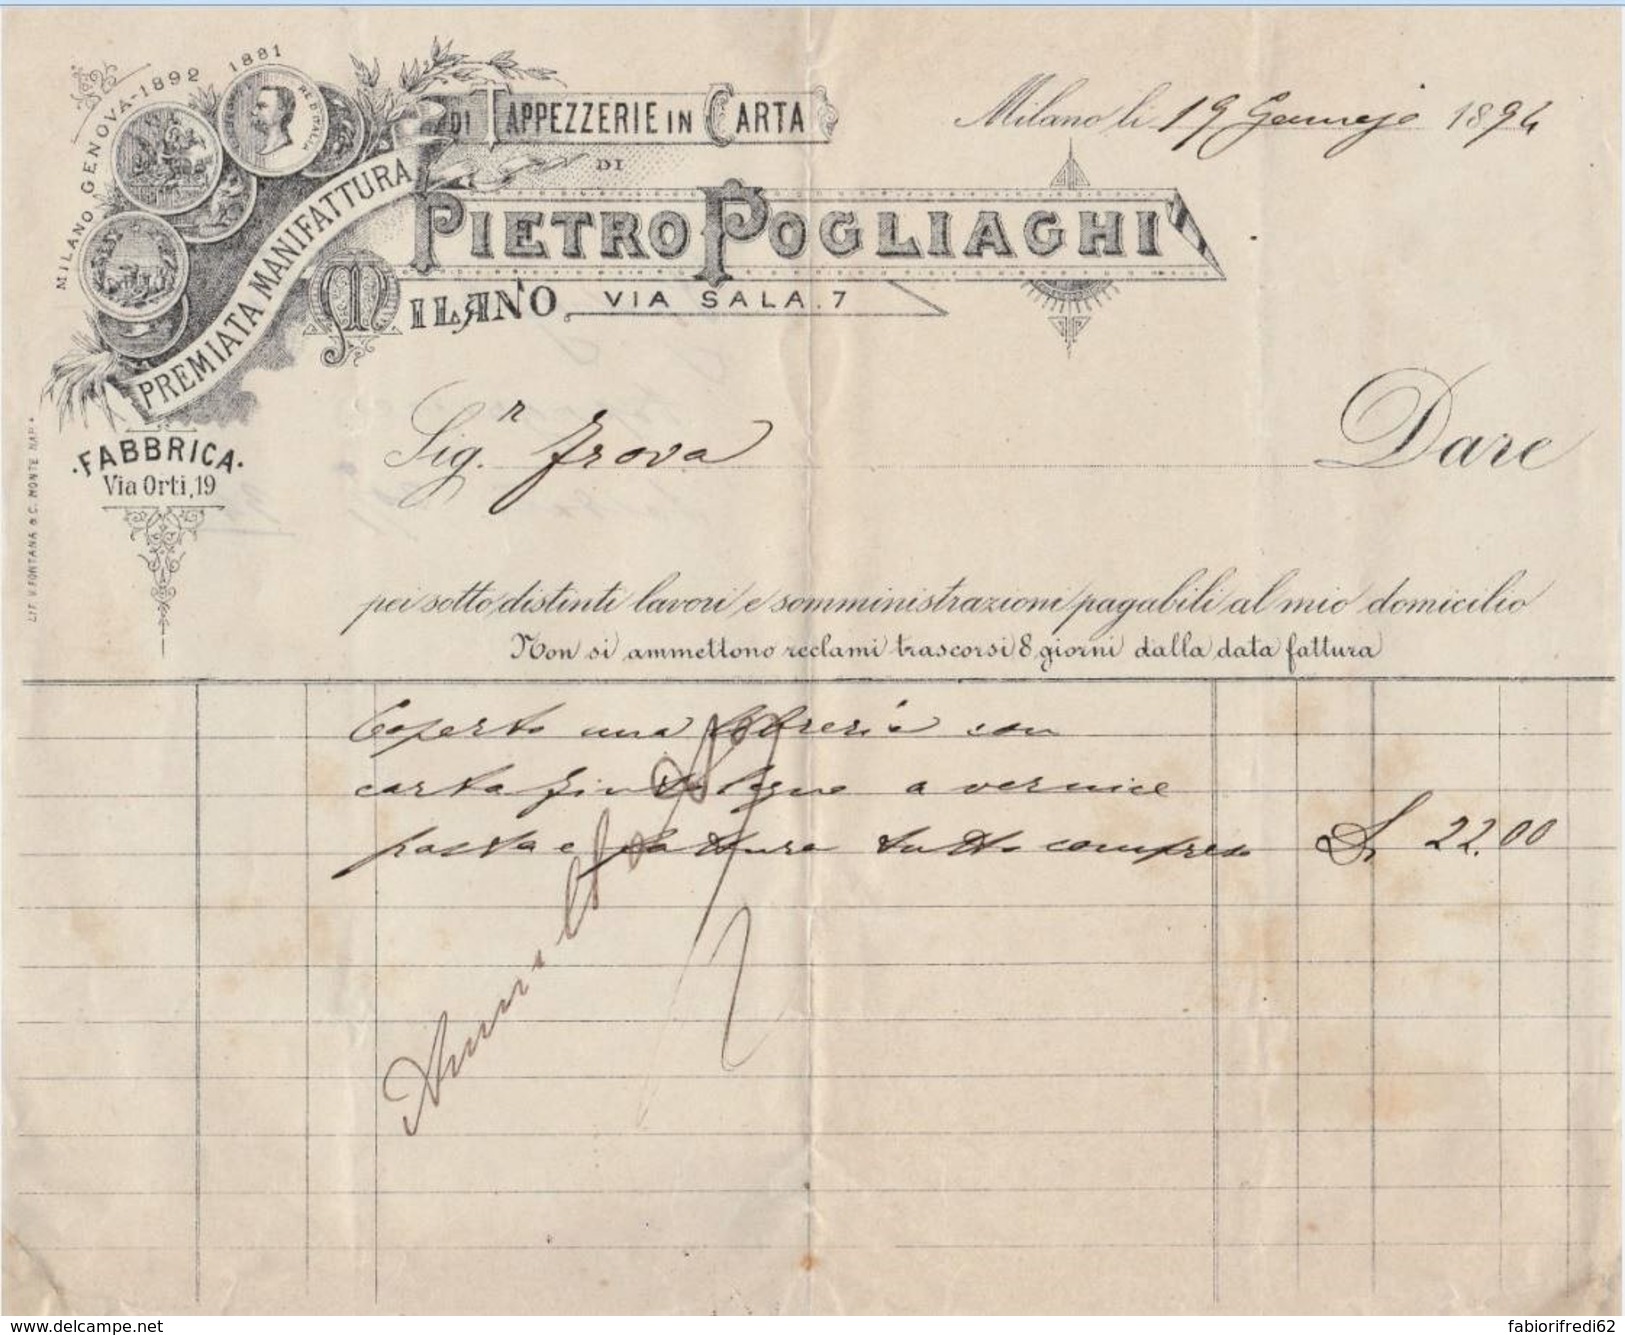 MILANO GENOVA-1892 1881
RE D'ITALIA
PREMIATA MANIFATTURA
DI TAPPEZZERIE IN CARTA
DI
PIETRO POGLIAGHI
MILANO, VIA SALA. 7
Milano li 19 Gennajo 1894
·FABBRICA·
Via Orti, 19
LIT. V. FONTANA & C. MONTE NAP.
Sig.r Frova Dare
pei sotto distinti lavori e somministrazioni pagabili al mio domicilio
Non si ammettono reclami trascorsi 8 giorni dalla data fattura
Coperto una libreria con
carta finto legno a vernice
posta e fattura tutto compreso L. 22.00
www.delcampe.net
fabiorifredi62